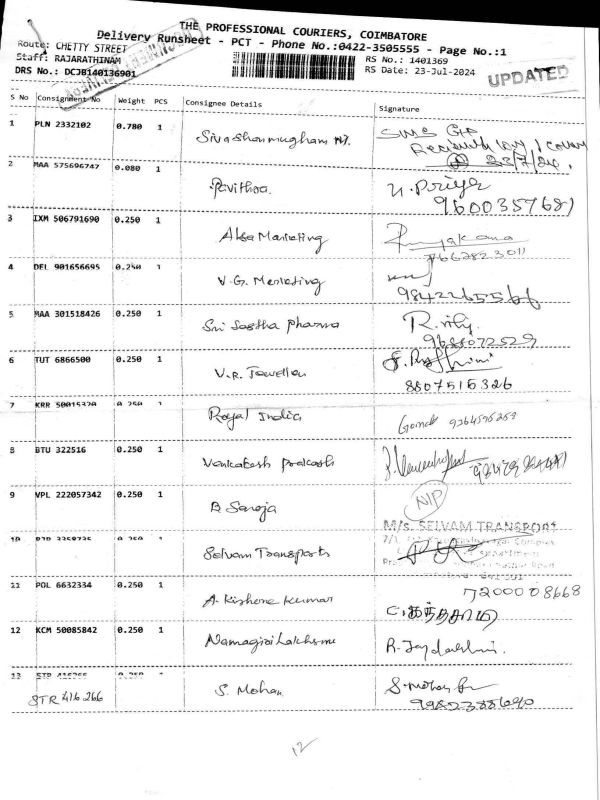 THE PROFESSIONAL COURIERS, COIMBATORE
Delivery Runsheet - PCT - Phone No.:0422-3505555 - Page No.:1
Route: CHETTY STREET
Staff: RAJARATHINAM
DRS No.: DCJB140136901
1401369
RS No.: 1401369
RS Date: 23-Jul-2024
UPDATED
S No Consignment No Weight PCS Consignee Details Signature
1 PLN 2332102 0.780 1 Sivashanmugham
23/7/24.
2 MAA 575696747 0.080 1 Pavithra. U. Priya
9600357687
3 IXM 506791690 0.250 1 Alsa Marketing
7662823011
4 DEL 901656695 0.250 1 V.G. Marketing
9842265566
5 MAA 301518426 0.250 1 Sri Sastha Pharma
9688072529
6 TUT 6866500 0.250 1 V.R. Jewellers
8807515326
7 KRR 50015320 0.250 1 Royal India
8 BTU 322516 0.250 1 Venkatesh Prakash
9 VPL 222057342 0.250 1 B Saroja NIP
M/s. SELVAM TRANSPORT
10 0.250 1 Selvam Transports
11 POL 6632334 0.250 1 A. Kishore Kumar 7200008668
12 KCM 50085842 0.250 1 Namagiri Lakshmi
13 STR 416266 0.250 1 S. Mohan S. Mohan
STR 416266
12